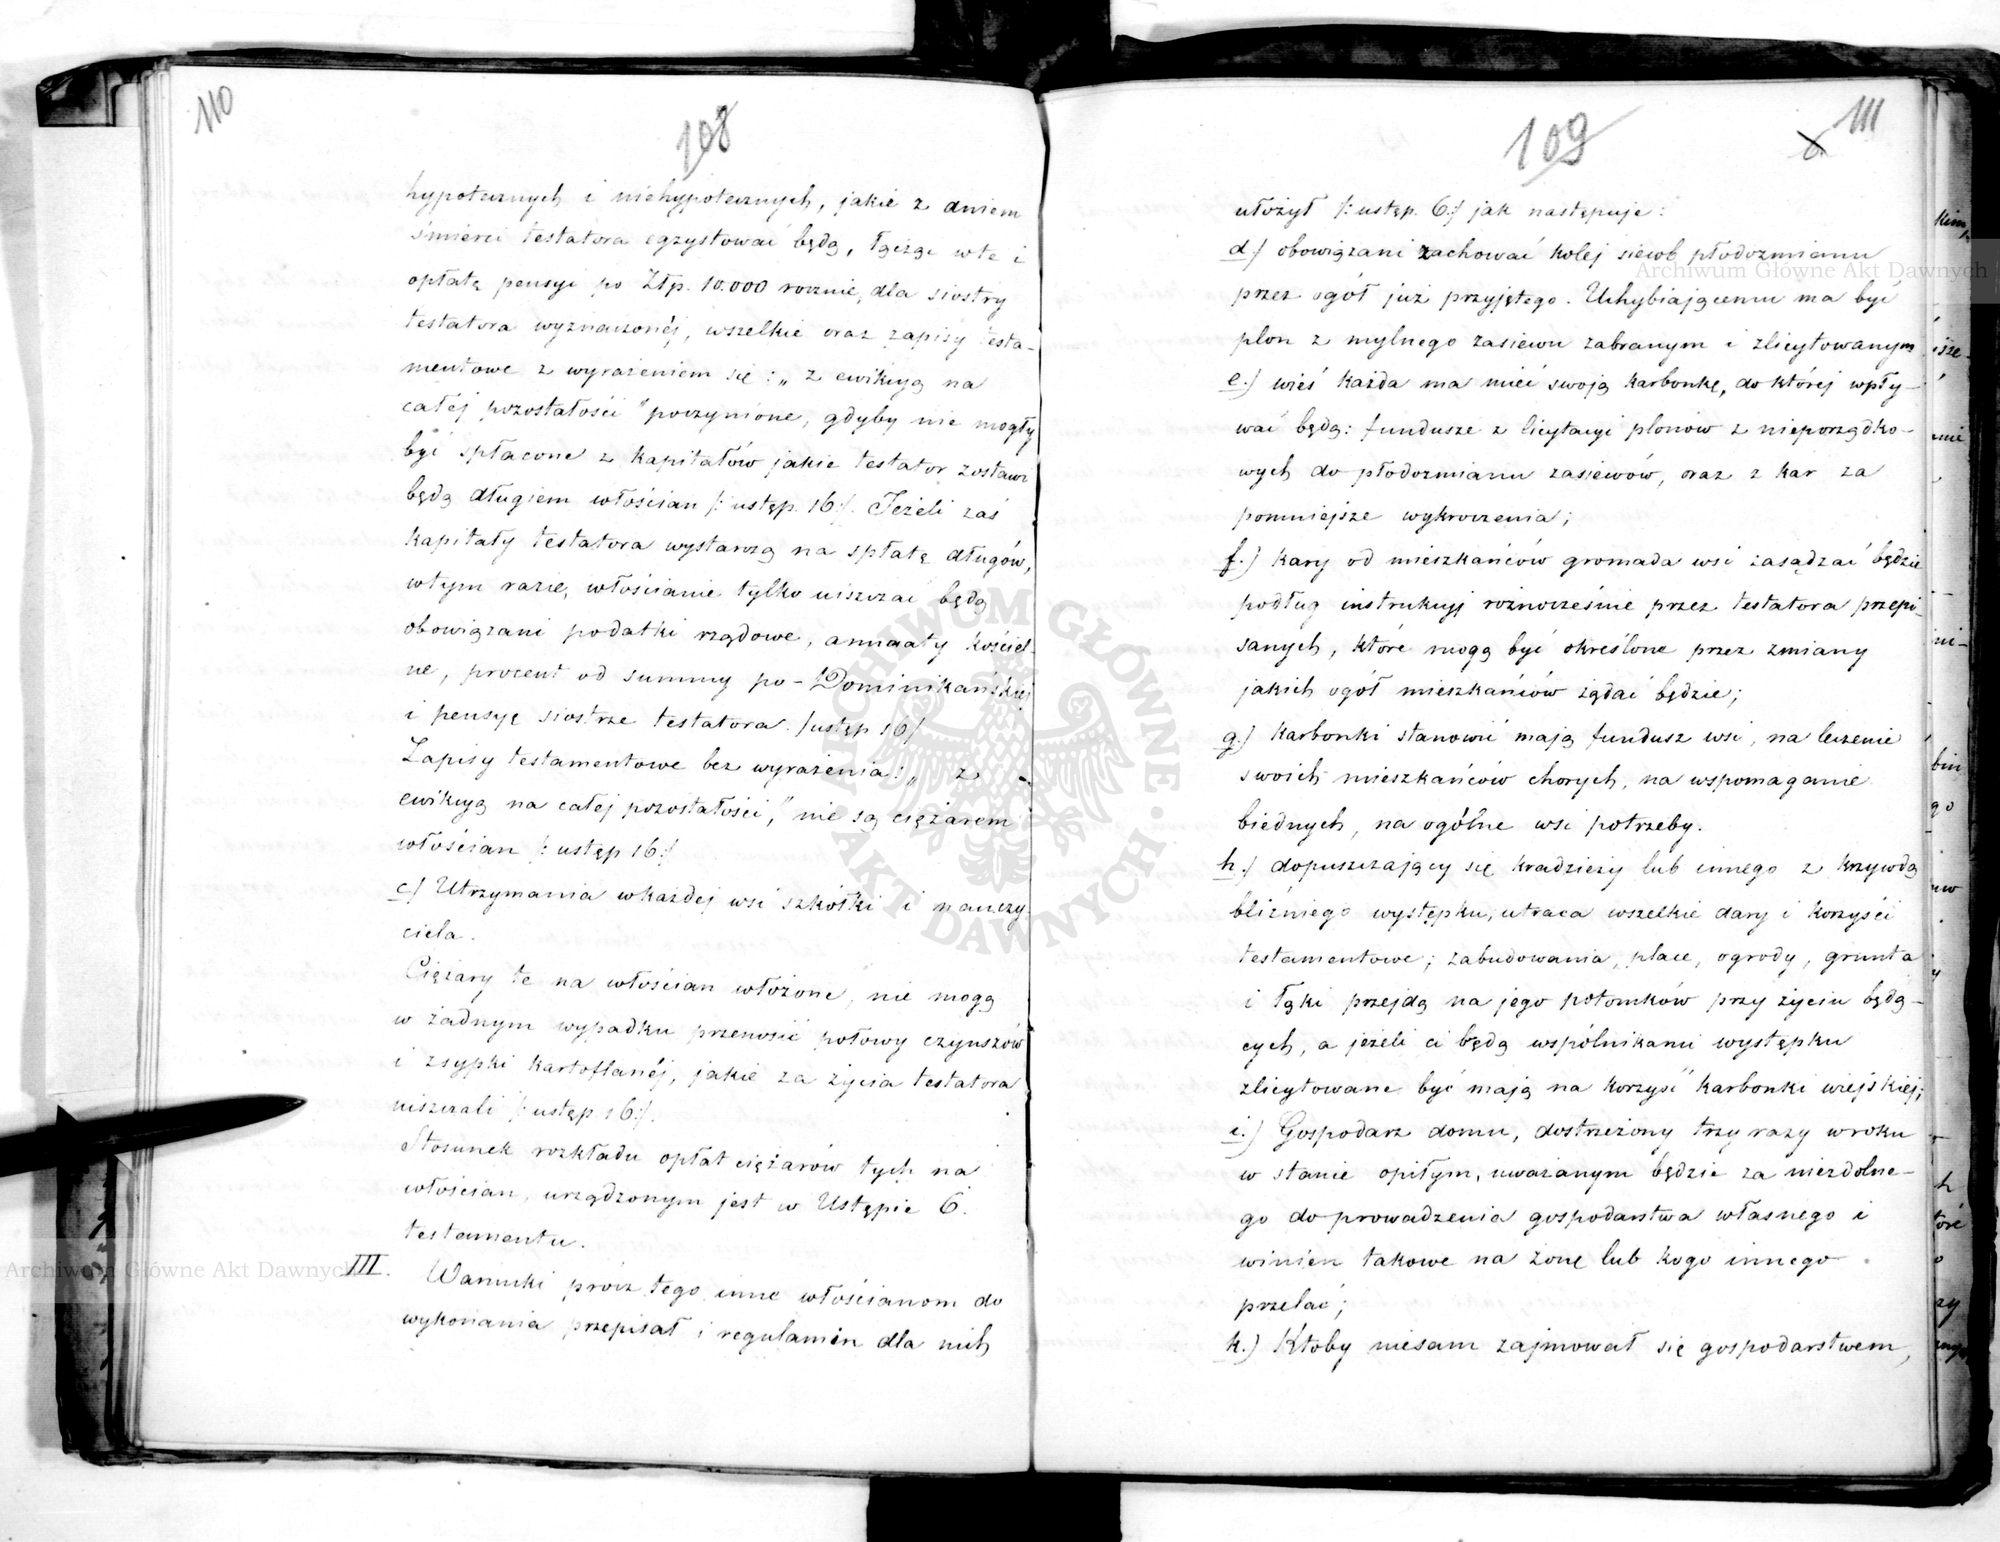 110
108
hypotecznych i niehypotecznych, jakie z dniem
śmierci testatora egzystować będą, łącząc w to i
opłatę pensyi po Złp. 10.000 rocznie, dla siostry
testatora wyznaczonéj, wszelkie oraz zapisy testa-
mentowe z wyrażeniem się: „z ewikcyą na
całéj pozostałości" poczynione, gdyby nie mogły
być spłacone z kapitałów jakie testator zostawi
będą długiem włościan /: ustęp. 16:/. Jeżeli zaś
kapitały testatora wystarczą na spłatę długów,
wtym razie, włościanie tylko uiszczać będą
obowiązani podatki rządowe, annuaty kościel-
ne, procent od summy po-Dominikańskiej
i pensyę siostrze testatora. /ustęp 16/
Zapisy testamentowe bez wyrażenia: „z
ewikcyą na całej pozostałości," nie są ciężarem
włościan /: ustęp 16:/
c/ Utrzymania wkażdej wsi szkółki i nauczy-
ciela.
Ciężary te na włościan włożone, nie mogą
w żadnym wypadku przenosić połowy czynszów
i zsypki kartoflanéj, jakie za życia testatora
uiszczali /: ustęp 16:/.
Stosunek rozkładu opłat ciężarów tych na
włościan, urządzonym jest w Ustępie 6.
testamentu.
III. Warunki prócz tego inne włościanom do
wykonania przepisał i regulamin dla nich
109
111
ułożył /: ustęp. 6:/ jak następuje:
d/ obowiązani zachować kolej siewb płodozmianu
przez ogół już przyjętego. Uchybiającemu ma być
plon z mylnego zasiewu zabranym i zlicytowanym
e.) wieś każda ma mieć swoją karbonkę, do której wpły-
wać będą: fundusze z licytacyi plonów z nieporządko-
wych do płodozmianu zasiewów, oraz z kar za
pomniejsze wykroczenia;
f.) kary od mieszkańców gromada wsi zasądzać będzie
podług instrukcyj roznocześnie przez testatora przepi-
sanych, które mogą być określone przez zmiany
jakich ogół mieszkańców żądać będzie;
g.) karbonki stanowić mają fundusz wsi, na leczenie
swoich mieszkańców chorych, na wspomaganie
biednych, na ogólne wsi potrzeby.
h.) dopuszczający się kradzieży lub innego z krzywdą
bliźniego występku, utraca wszelkie dary i korzyści
testamentowe; zabudowania, place, ogrody, grunta
i łąki przejdą na jego potomków przy życiu będą-
cych, a jeżeli ci będą wspólnikami występku
zlicytowane być mają na korzyść karbonki wiejskiej;
i.) Gospodarz domu, dostrzeżony trzy razy w roku
w stanie opiłym, uważanym będzie za niezdolne-
go do prowadzenia gospodarstwa własnego i
winien takowe na żonę lub kogo innego
przelać;
k.) Ktoby niesam zajmował się gospodarstwem,
Archiwum Główne Akt Dawnych
Archiwum Główne Akt Dawnych
ARCHIWUM GŁÓWNE · AKT DAWNYCH ·